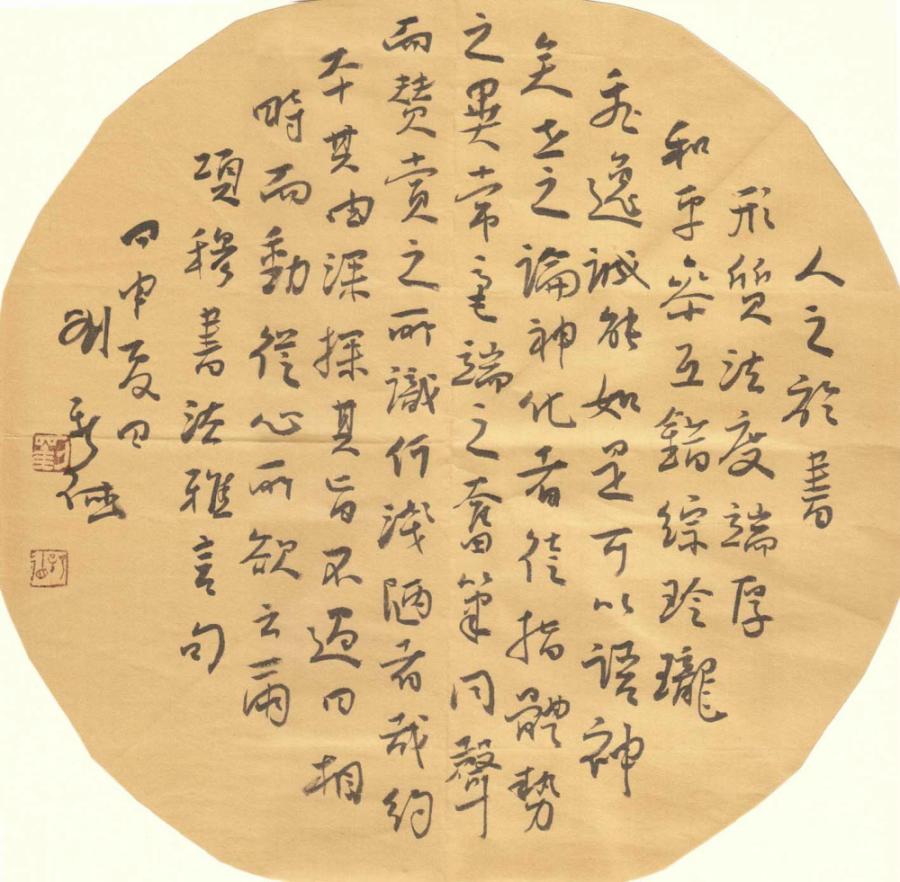 人之於書
形質法度端厚
和平参互錯綜玲瓏
飛逸誠能如是可以語神
矣世之論神化者徒指體勢
之異常毫端之奮筆同聲
而贊賞之所識何淺陋者哉約
本其由深探其旨不過曰相
時而動從心所欲云爾
項穆書法雅言句
丙申夏日
劉